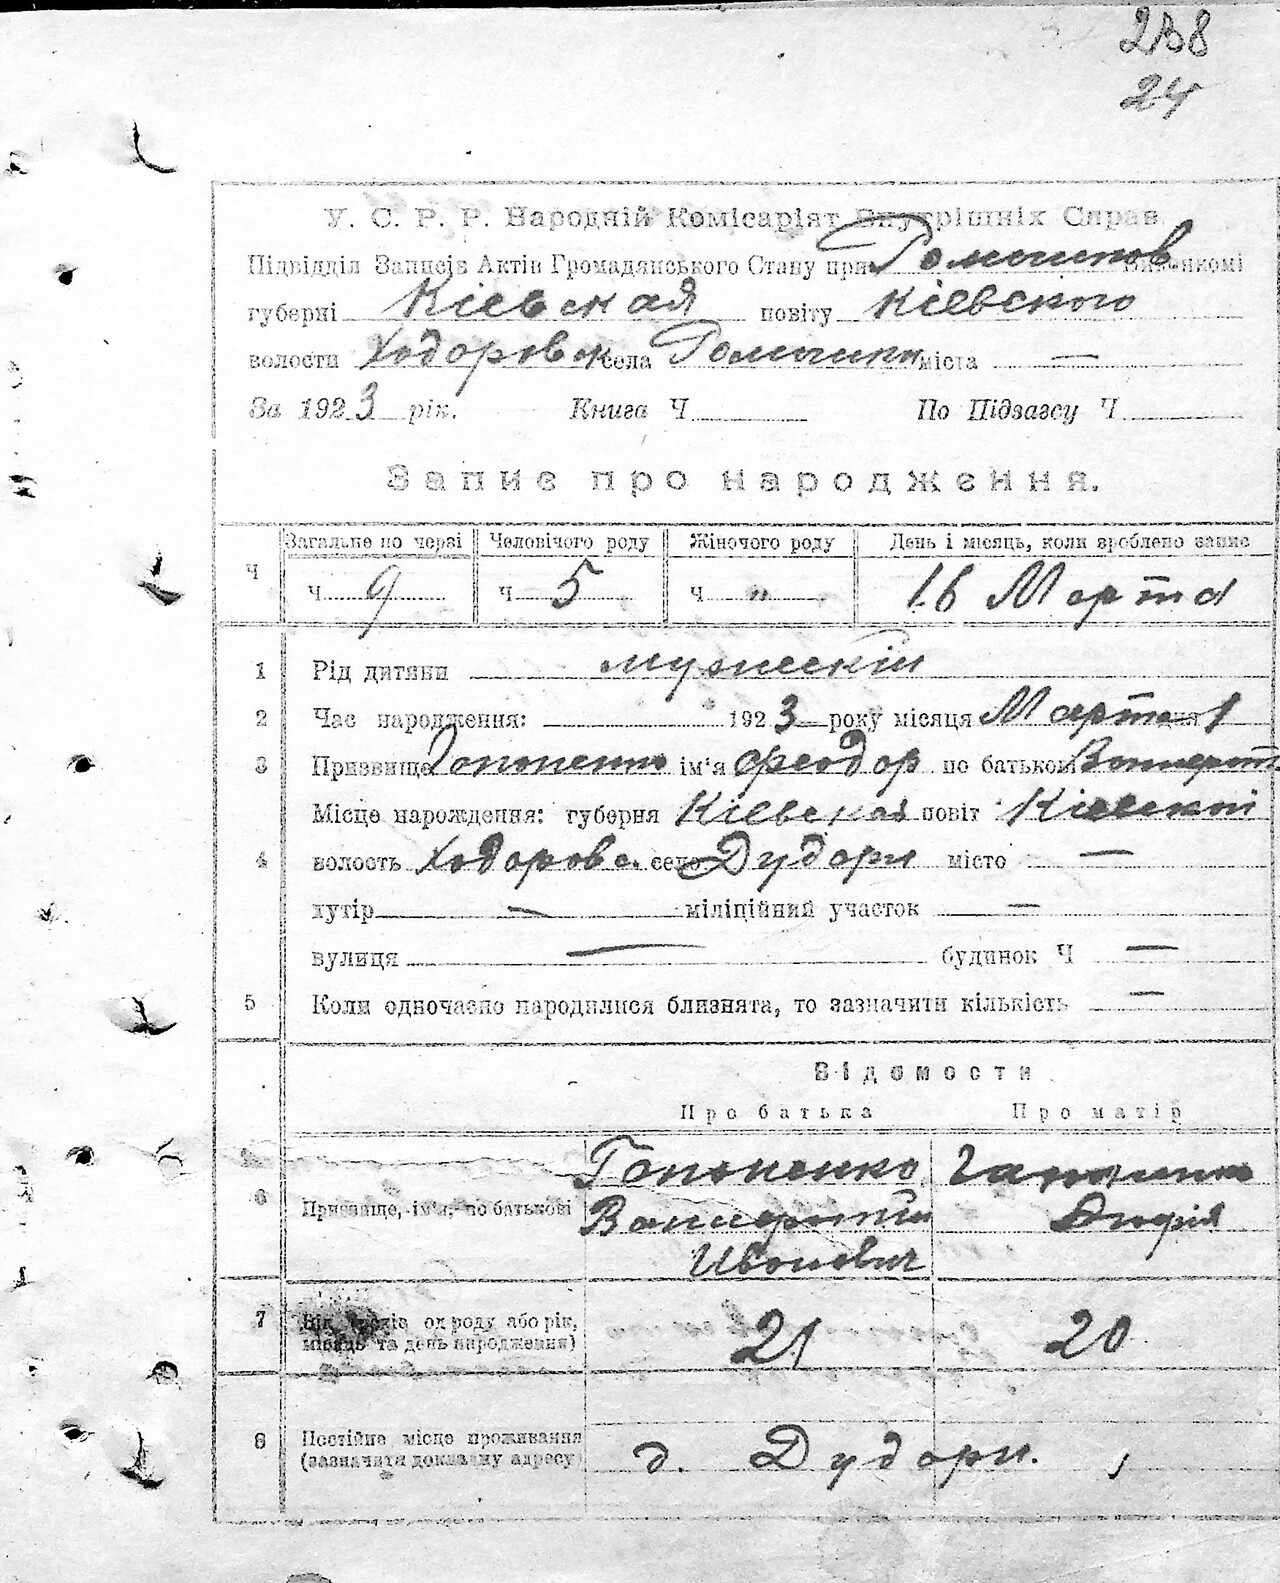 238
24
У. С. Р. Р. Народній Комісаріят Внутрішніх Справ.
Підвідділ Записів Актів Громадянського Стану при Ромашков Виконкомі
губерні Кіевская повіту Кіевского
волости Ходоровск села Ромашки міста —
За 1923 рік. Книга Ч По Підзагсу Ч
Запис про народження.
Ч Загальне по черзі Человічого роду Жіночого роду День і місяць, коли зроблено запис
Ч 9 Ч 5 Ч " 16 Марта
1 Рід дитини мужескій
2 Час народження: 1923 року місяця Марта дня 1
3 Призвище Гапоненко ім'я Феодор по батькові
Місце народження: губерня Кіевская повіт Кіевскій
4 волость Ходоровс. село Дудари місто —
хутір — міліційний участок —
вулиця — будинок Ч —
5 Коли одночасно народилися близнята, то зазначити кількість —
Відомости
Про батька Про матір
Гапоненко Гапоненко
6 Призвище, ім'я, по батькові
Ивонович
7 Вік (років од роду або рік, 21 20
місяць та день народження)
8 Постійне місце проживання
(зазначити докладну адресу) д. Дудари.